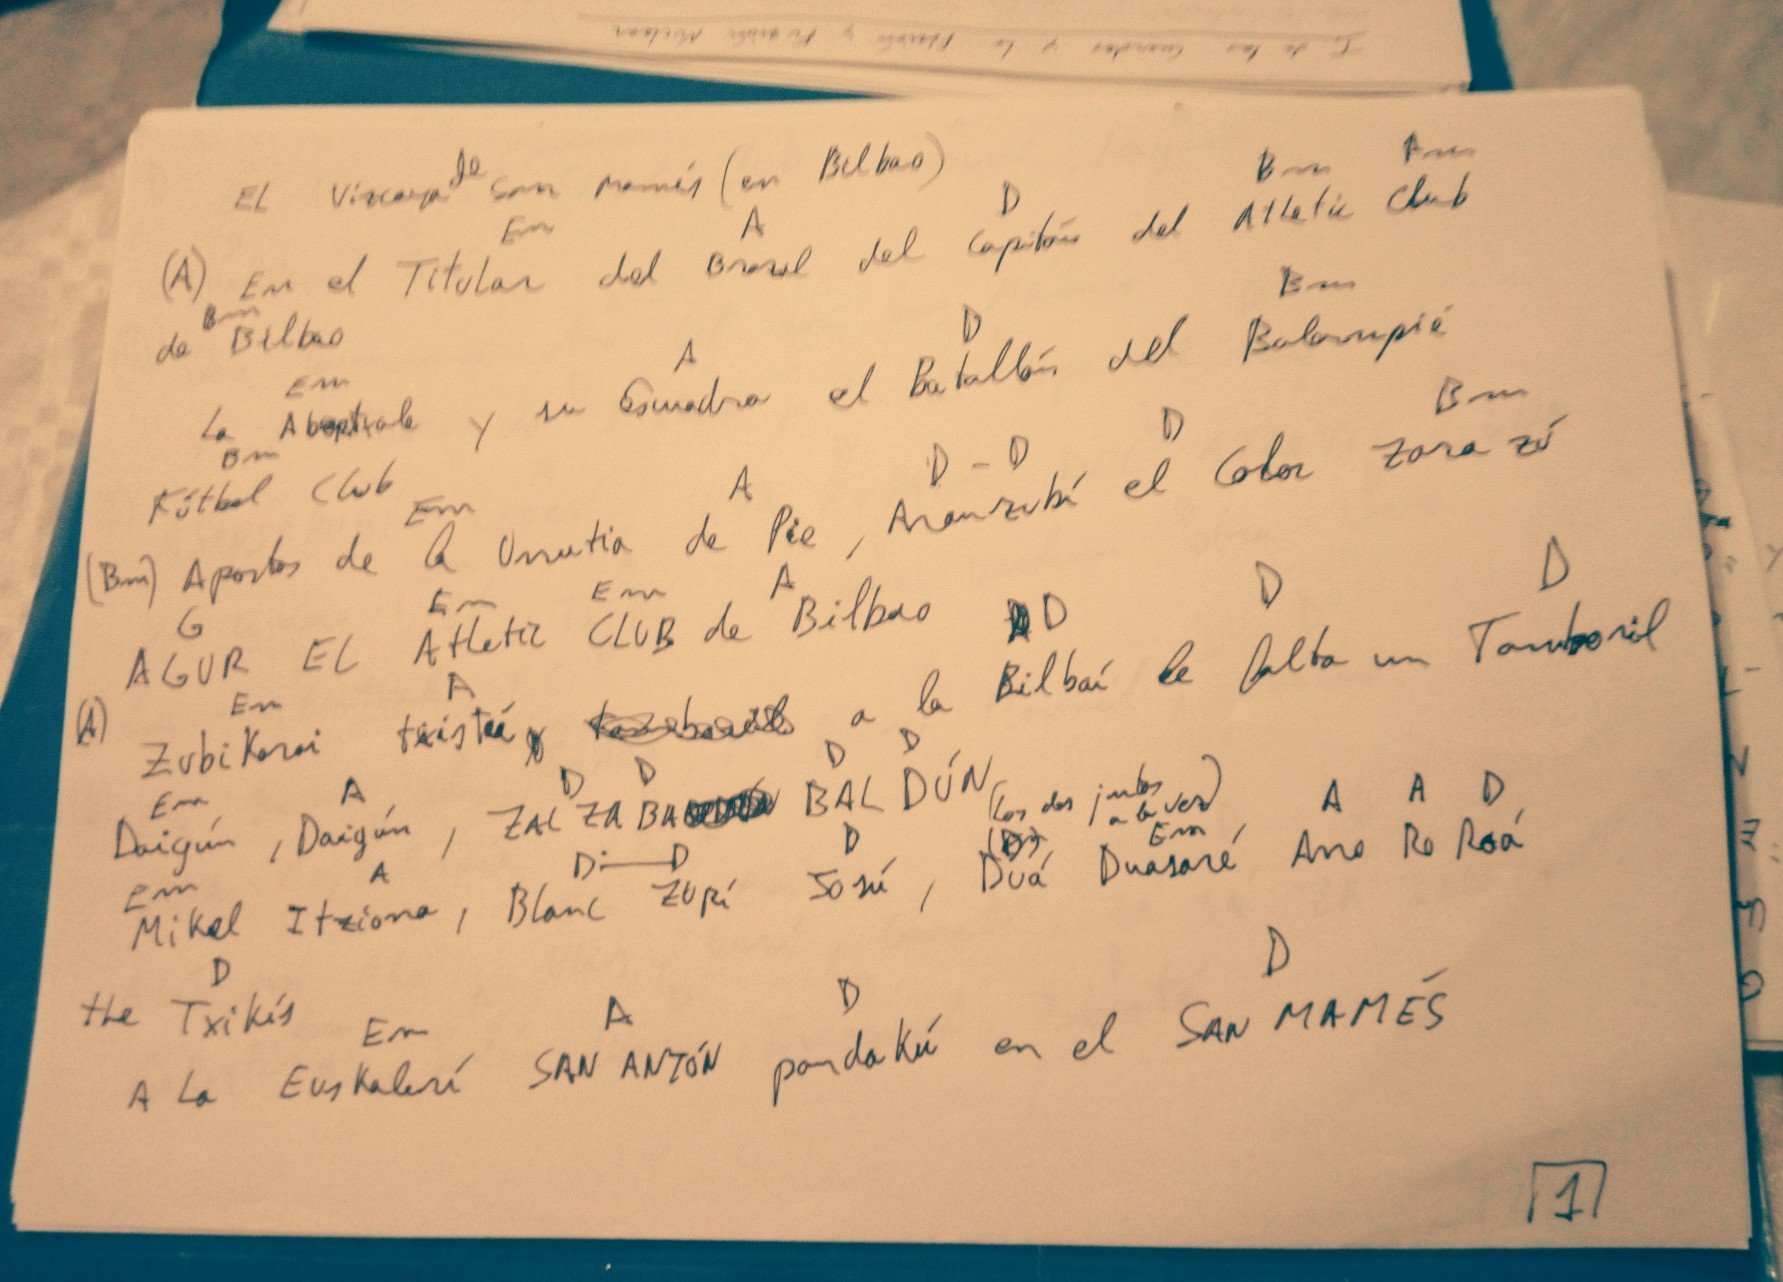 EL Vizcaya de San Mamés (en Bilbao)
Em A D Bm Am
(A) En el Titular del Brasil del Capitán del Atletic Club
Bm
de Bilbao
Em A D Bm
La y su Escuadra el Batallón del Balompié
Bm
Fútbol Club
Em A D - D D Bm
(Bm) Apostos de la Urrutia de Pie, Aranzubí el Color zara zú
G Em Em A
AGUR EL Atletic CLUB de Bilbao
(A) Em A D D D
Zubikarai txisteá, a la Bilbaí le falta un Tamboril
Em A D D D D
Daigún, Daigún, ZAL ZA BA BAL DÚN (los dos juntos a la vez)
Em A D — D D Em A A D
Mikel Itziarra, Blanc ZURÍ Josú, Duá Duasaré, Arro Ro Roá
D
the Txikis
Em A D D
A La Euskalerí SAN ANTÓN pardakú en el SAN MAMÉS
1